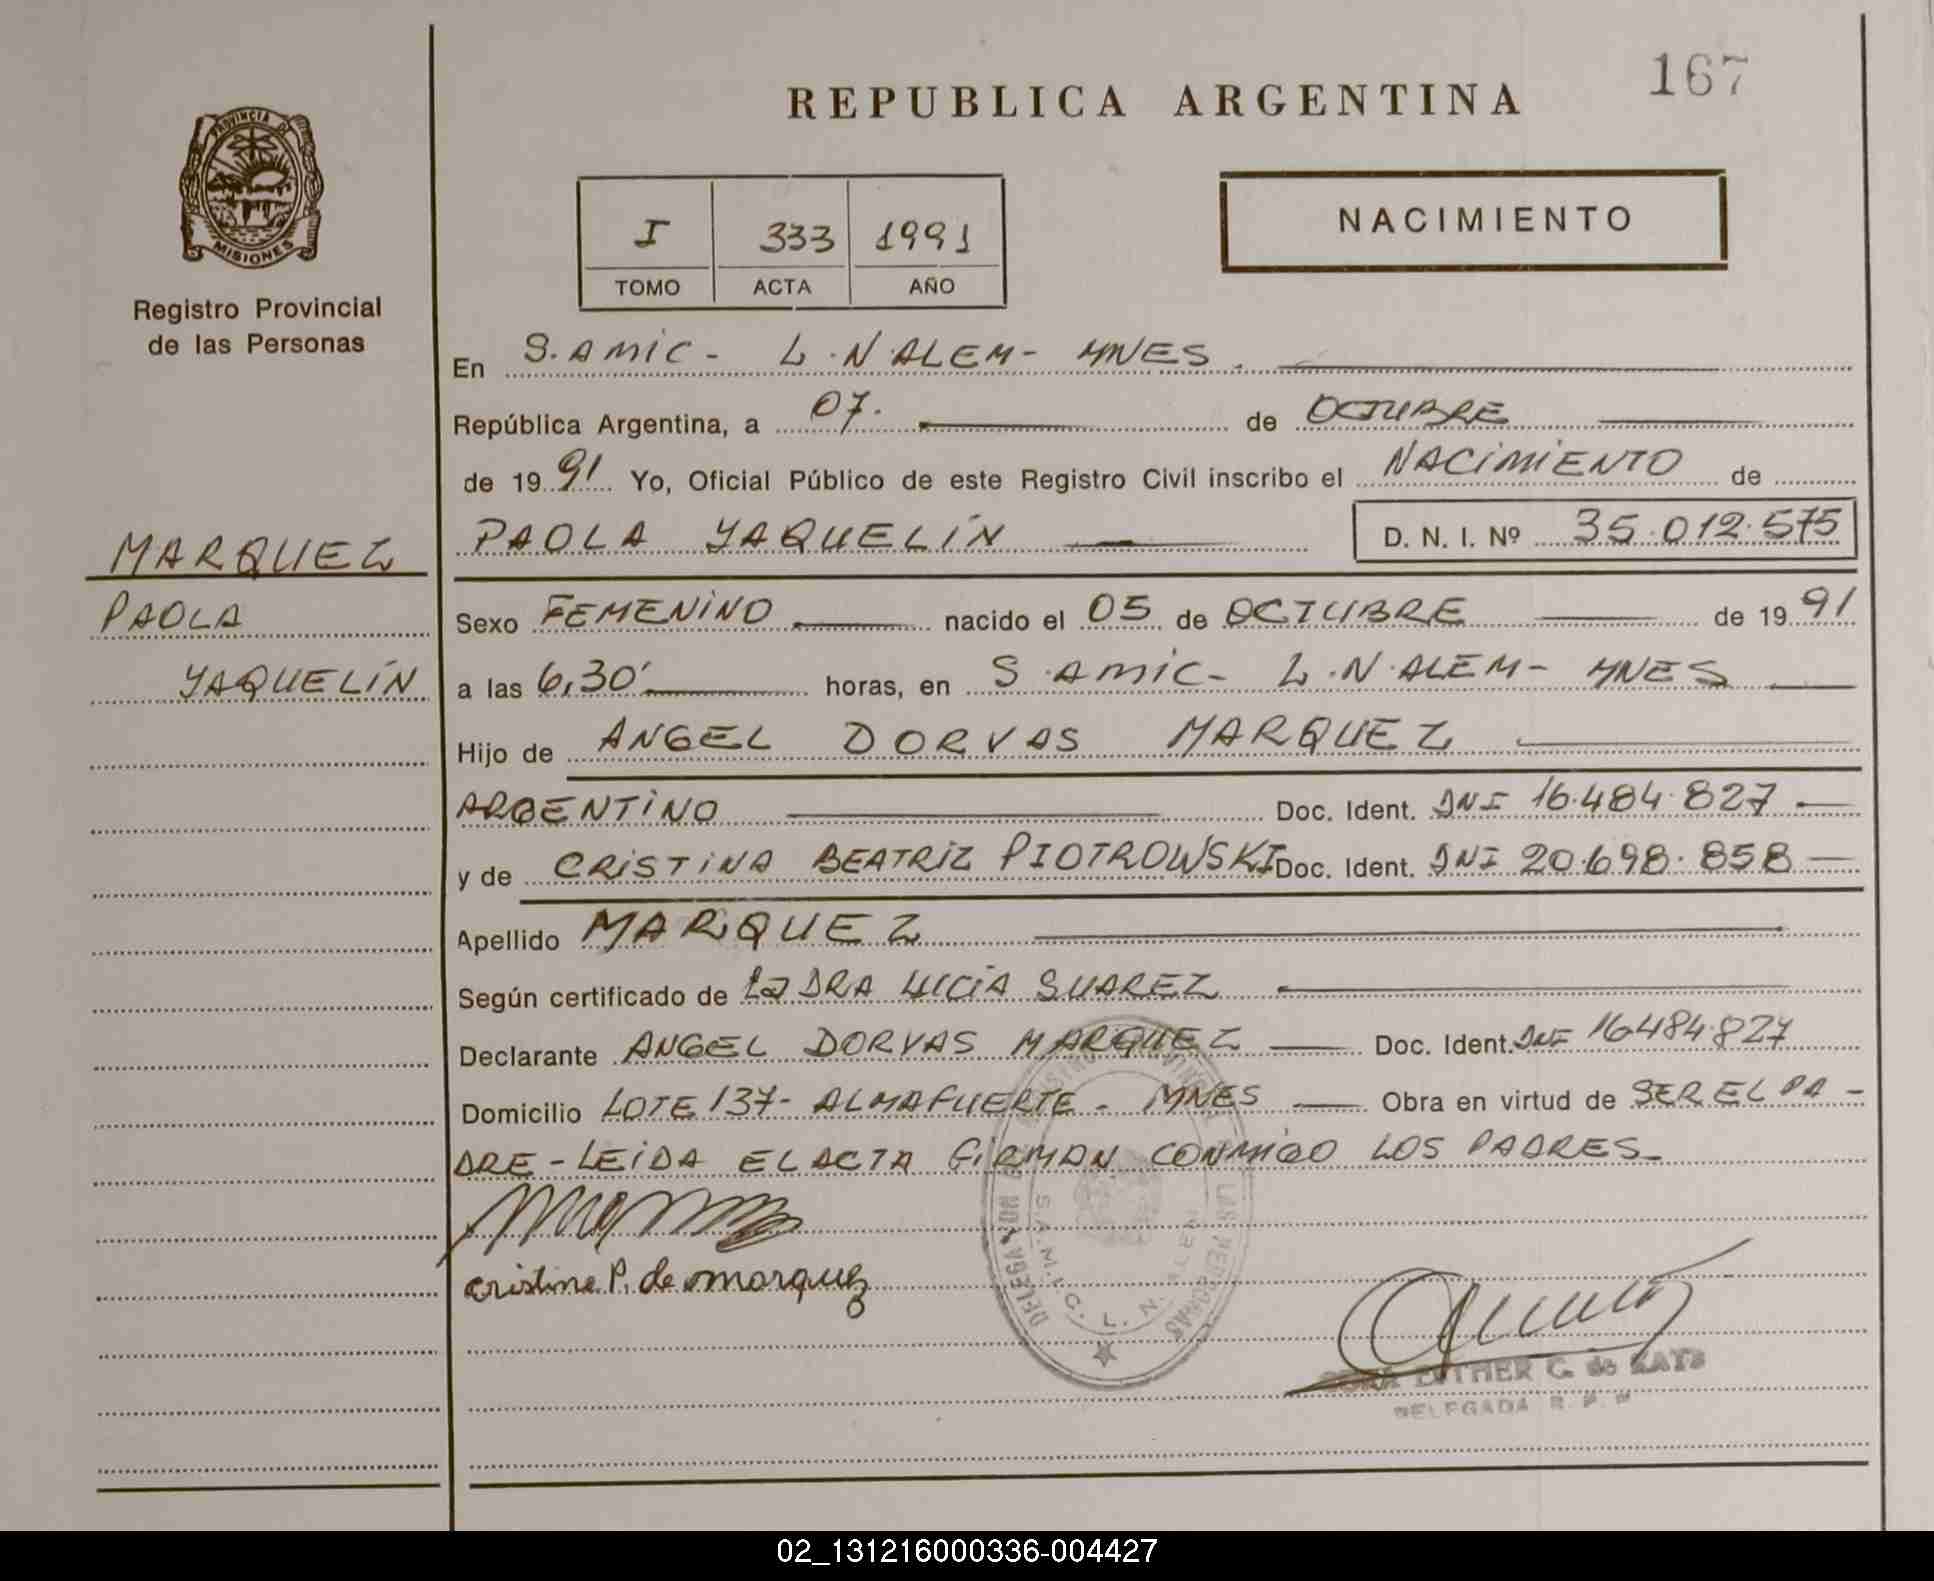 167
REPUBLICA ARGENTINA
PROVINCIA DE
MISIONES
Registro Provincial
de las Personas
I 333 1991
TOMO ACTA AÑO
NACIMIENTO
En S.AMIC- L.N.ALEM- MNES.
República Argentina, a 07. de OCTUBRE
de 1991 Yo, Oficial Público de este Registro Civil inscribo el NACIMIENTO de
PAOLA YAQUELÍN D. N. I. Nº 35.012.575
MARQUEZ
PAOLA
YAQUELÍN
Sexo FEMENINO nacido el 05 de OCTUBRE de 1991
a las 6,30' horas, en S.AMIC- L.N.ALEM- MNES
Hijo de ANGEL DORVAS MARQUEZ
ARGENTINO Doc. Ident. DNI 16.484.827
y de CRISTINA BEATRIZ PIOTROWSKI Doc. Ident. DNI 20.698.858
Apellido MARQUEZ
Según certificado de La DRA LUCÍA SUAREZ
Declarante ANGEL DORVAS MARQUEZ Doc. Ident. DNI 16484.827
Domicilio LOTE 137- ALMAFUERTE- MNES Obra en virtud de SER EL PA-
DRE-LEIDA EL ACTA FIRMAN CONMIGO LOS PADRES-
cristina P. de marquez
DELEGACION LAS PERSONAS
S.A.M.I.C. L. N. ALEM
ESTHER C. de
DELEGADA R. P. P
02_131216000336-004427